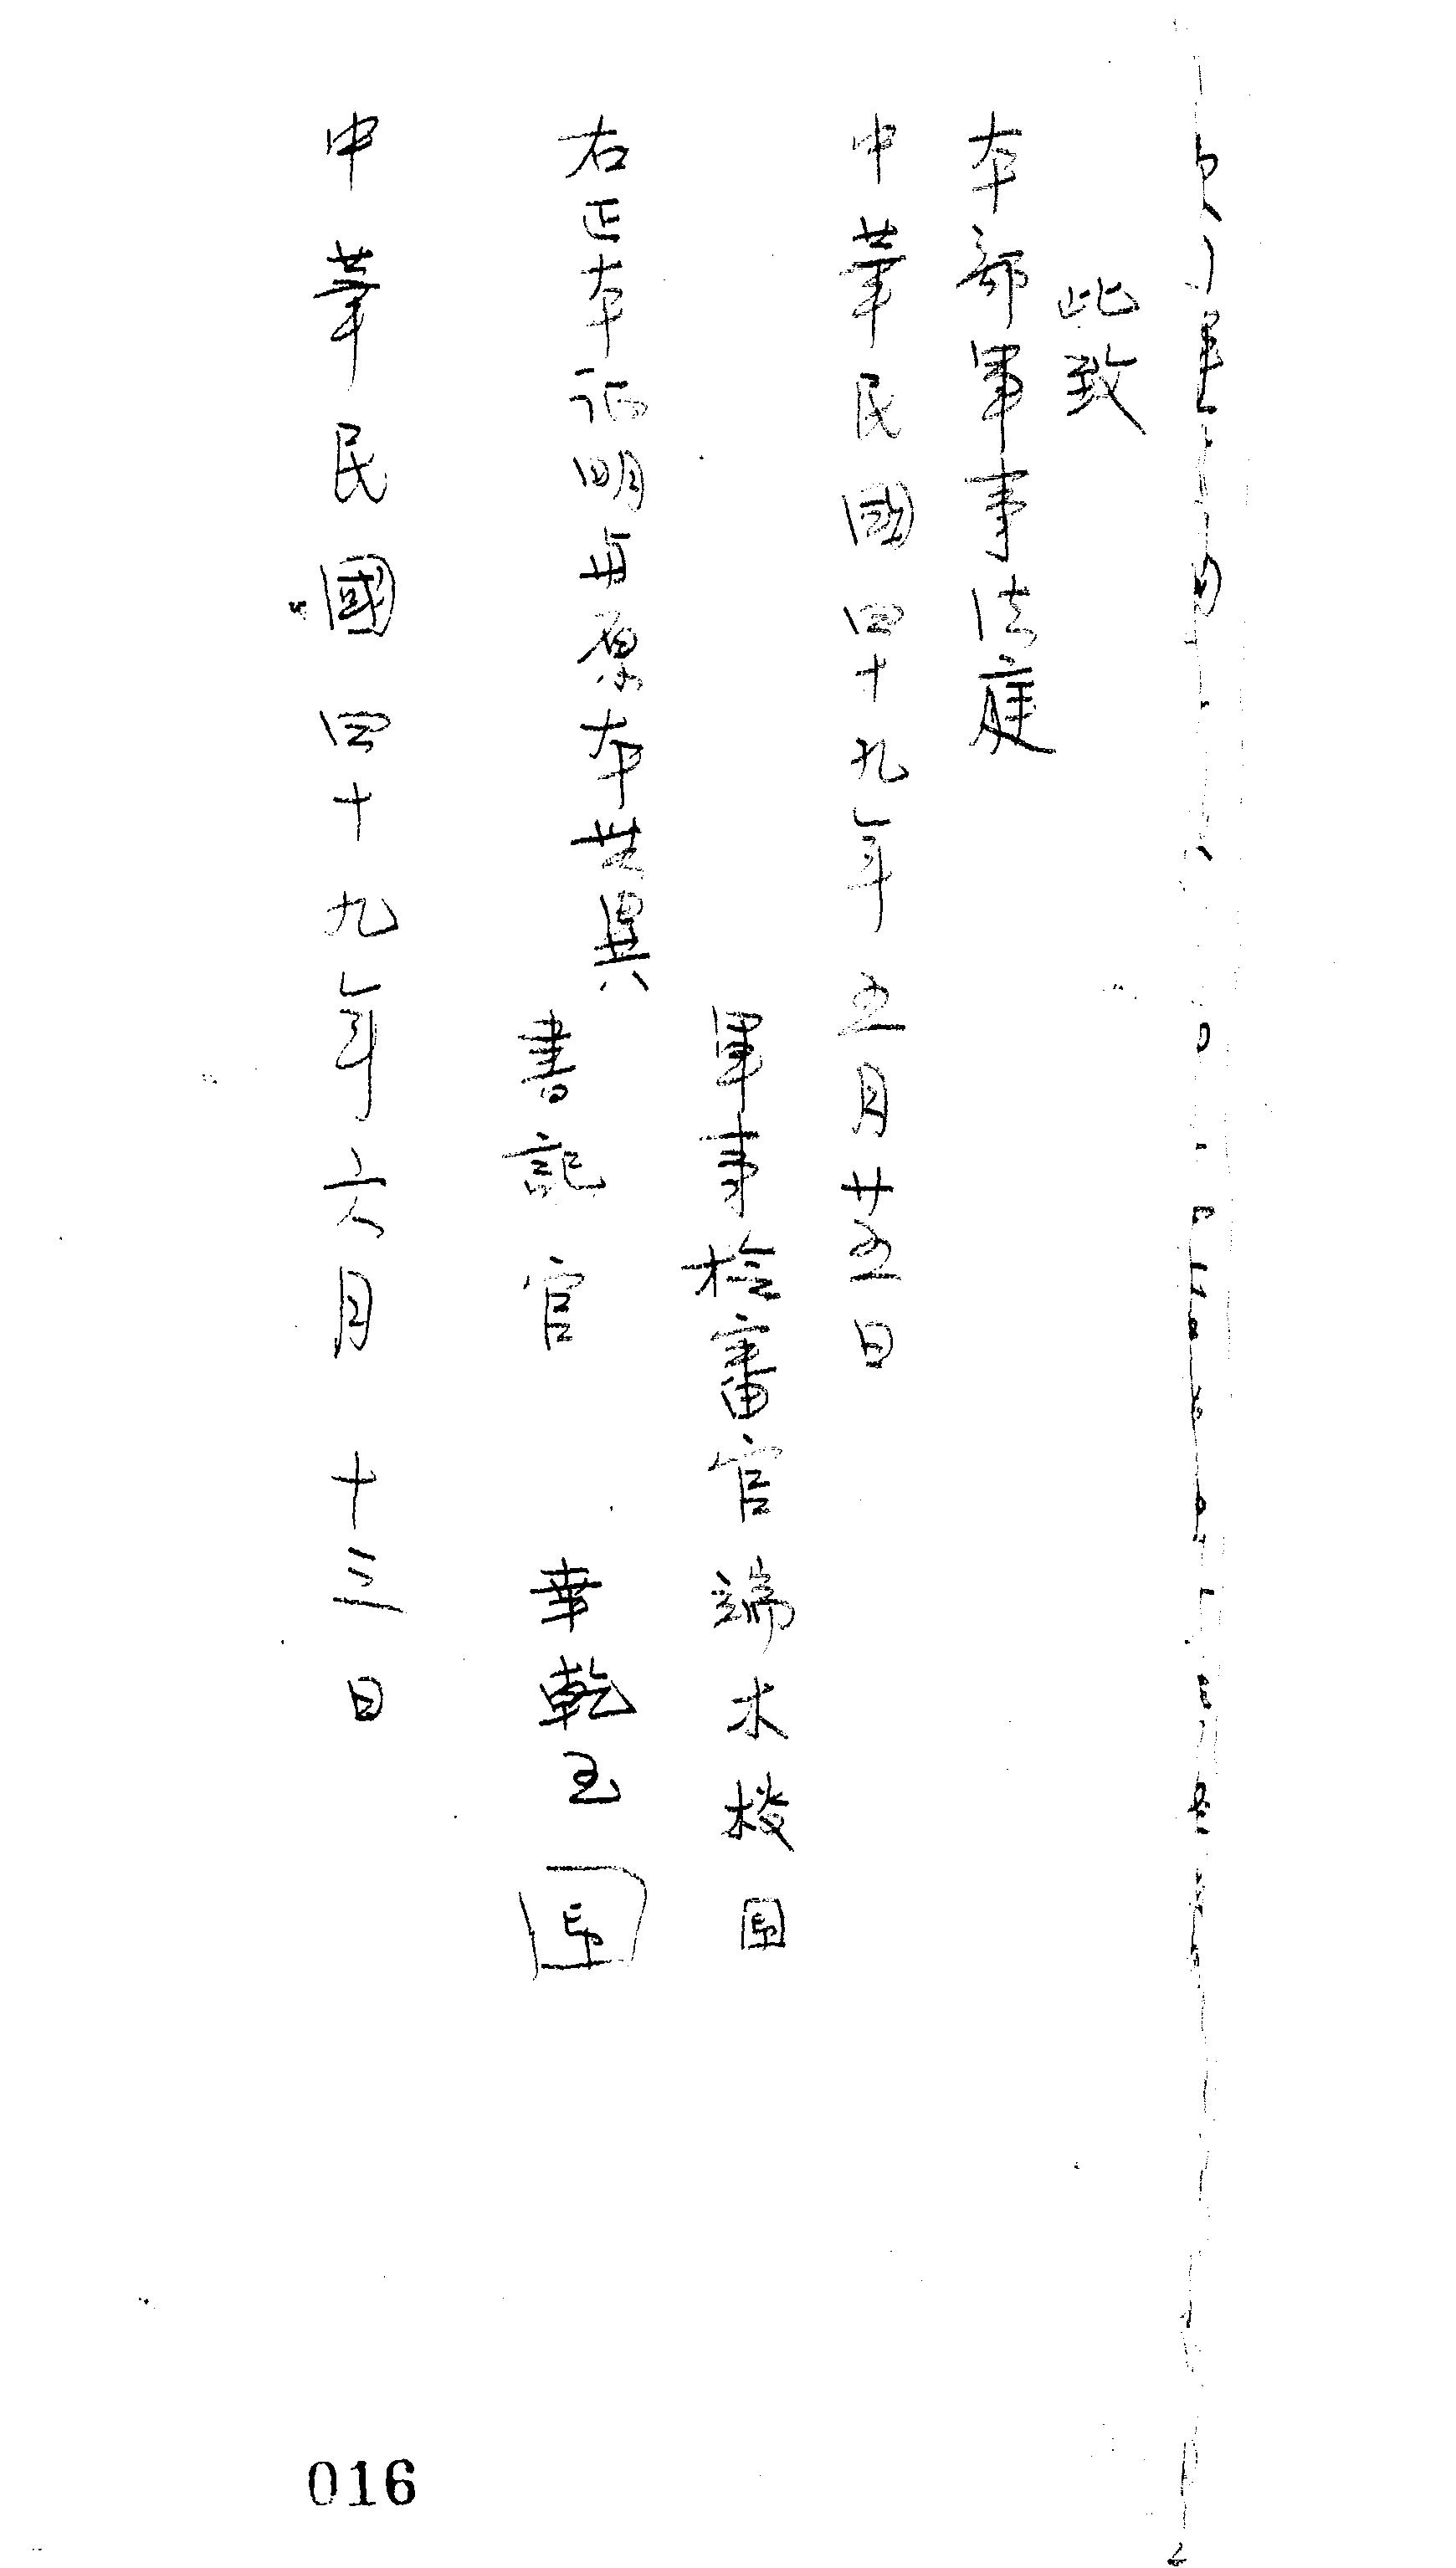 此致
本部軍事法庭
中華民國四十九年五月廿五日
軍事檢審官端木棪印
右正本証明與原本無異
書記官 華乾玉印
中華民國四十九年六月十三日
016